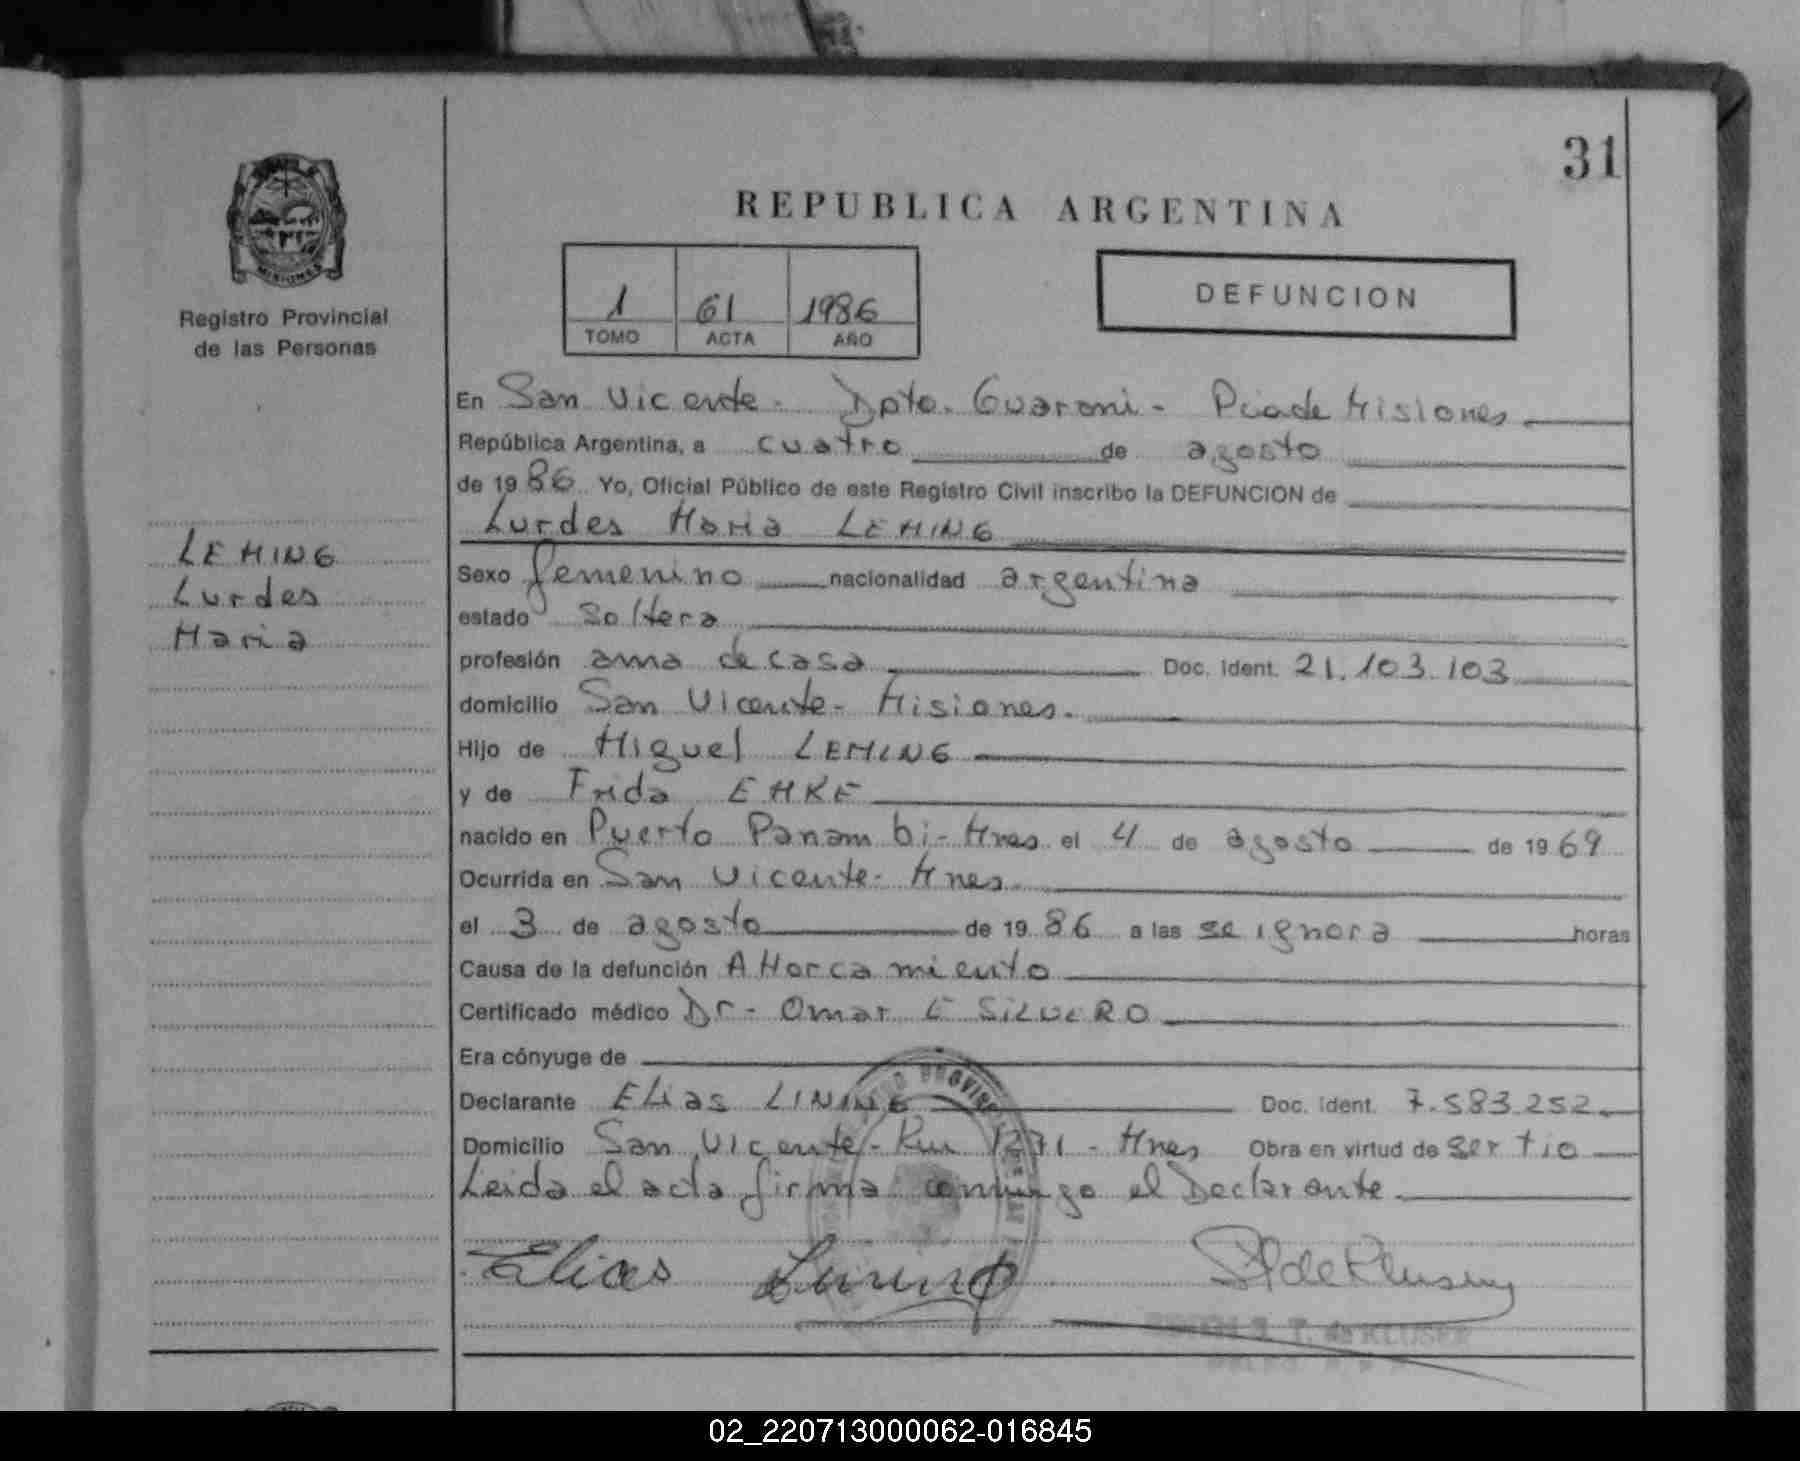 31
REPUBLICA ARGENTINA
MISIONES
Registro Provincial
de las Personas
1 61 1986
TOMO ACTA AÑO
DEFUNCION
En San Vicente - Dpto. Guarani - Pcia de Misiones
República Argentina, a cuatro de agosto
de 1986 Yo, Oficial Público de este Registro Civil inscribo la DEFUNCION de
Lurdes Maria LEMING
LEMING
Lurdes
Maria
Sexo femenino nacionalidad argentina
estado soltera
profesión ama de casa Doc. Ident. 21.103.103
domicilio San Vicente - Misiones.
Hijo de Miguel LEMING
y de Frida EMKE
nacido en Puerto Panambi - Mnes el 4 de agosto de 1969
Ocurrida en San Vicente - Mnes
el 3 de agosto de 1986 a las se ignora horas
Causa de la defunción AHorcamiento
Certificado médico Dr - Omar E SILVERO
Era cónyuge de
Declarante ELias LINING Doc. Ident. 7.583.252
Domicilio San Vicente - Km 1271 - Mnes Obra en virtud de ser tio
Leida el acta firma conmigo el Declarante
Elias Lining
T. de KLUSER
02_220713000062-016845